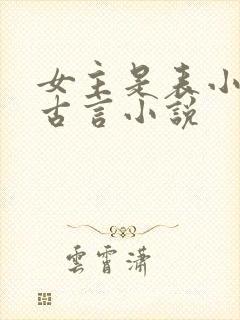 女主是表小
古言小說
雲霄瀟